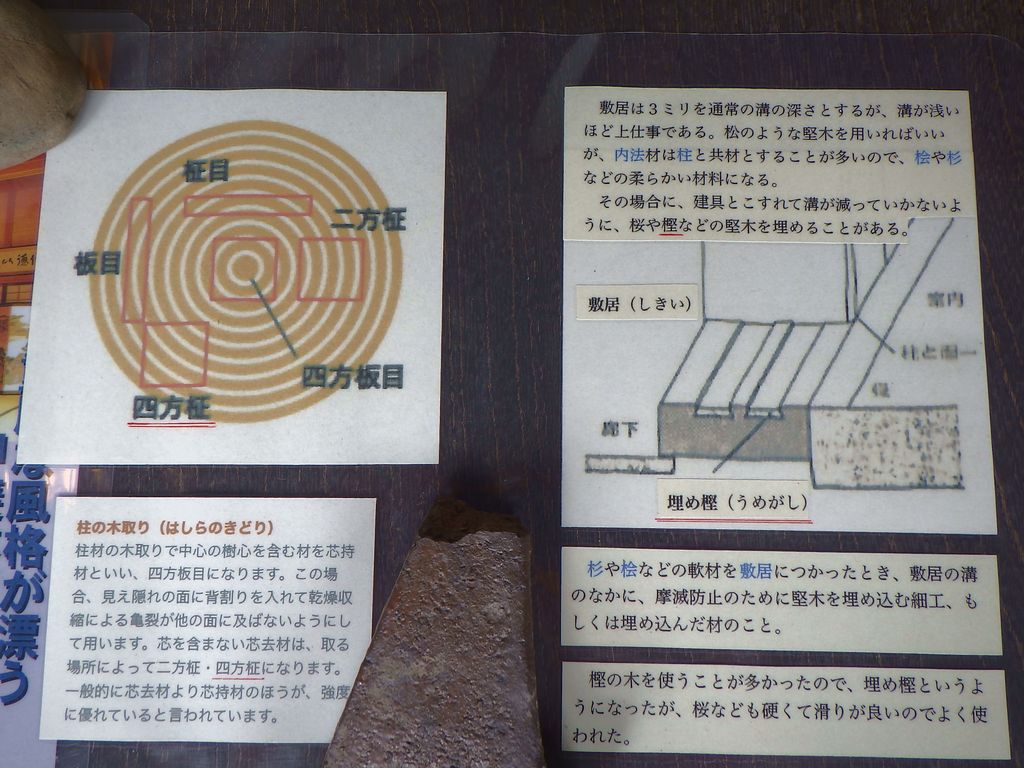 柾目
二方柾
板目
四方板目
四方柾
柱の木取り（はしらのきどり）
柱材の木取りで中心の樹心を含む材を芯持
材といい、四方板目になります。この場
合、見え隠れの面に背割りを入れて乾燥収
縮による亀裂が他の面に及ばないようにし
て用います。芯を含まない芯去材は、取る
場所によって二方柾・四方柾になります。
一般的に芯去材より芯持材のほうが、強度
に優れていると言われています。
風格が漂う
敷居は３ミリを通常の溝の深さとするが、溝が浅い
ほど上仕事である。松のような堅木を用いればいい
が、内法材は柱と共材とすることが多いので、桧や杉
などの柔らかい材料になる。
その場合に、建具とこすれて溝が減っていかないよ
うに、桜や樫などの堅木を埋めることがある。
敷居（しきい）
室内
柱と面一
廊下
埋め樫（うめがし）
杉や桧などの軟材を敷居につかったとき、敷居の溝
のなかに、摩滅防止のために堅木を埋め込む細工、も
しくは埋め込んだ材のこと。
樫の木を使うことが多かったので、埋め樫というよ
うになったが、桜なども硬くて滑りが良いのでよく使
われた。